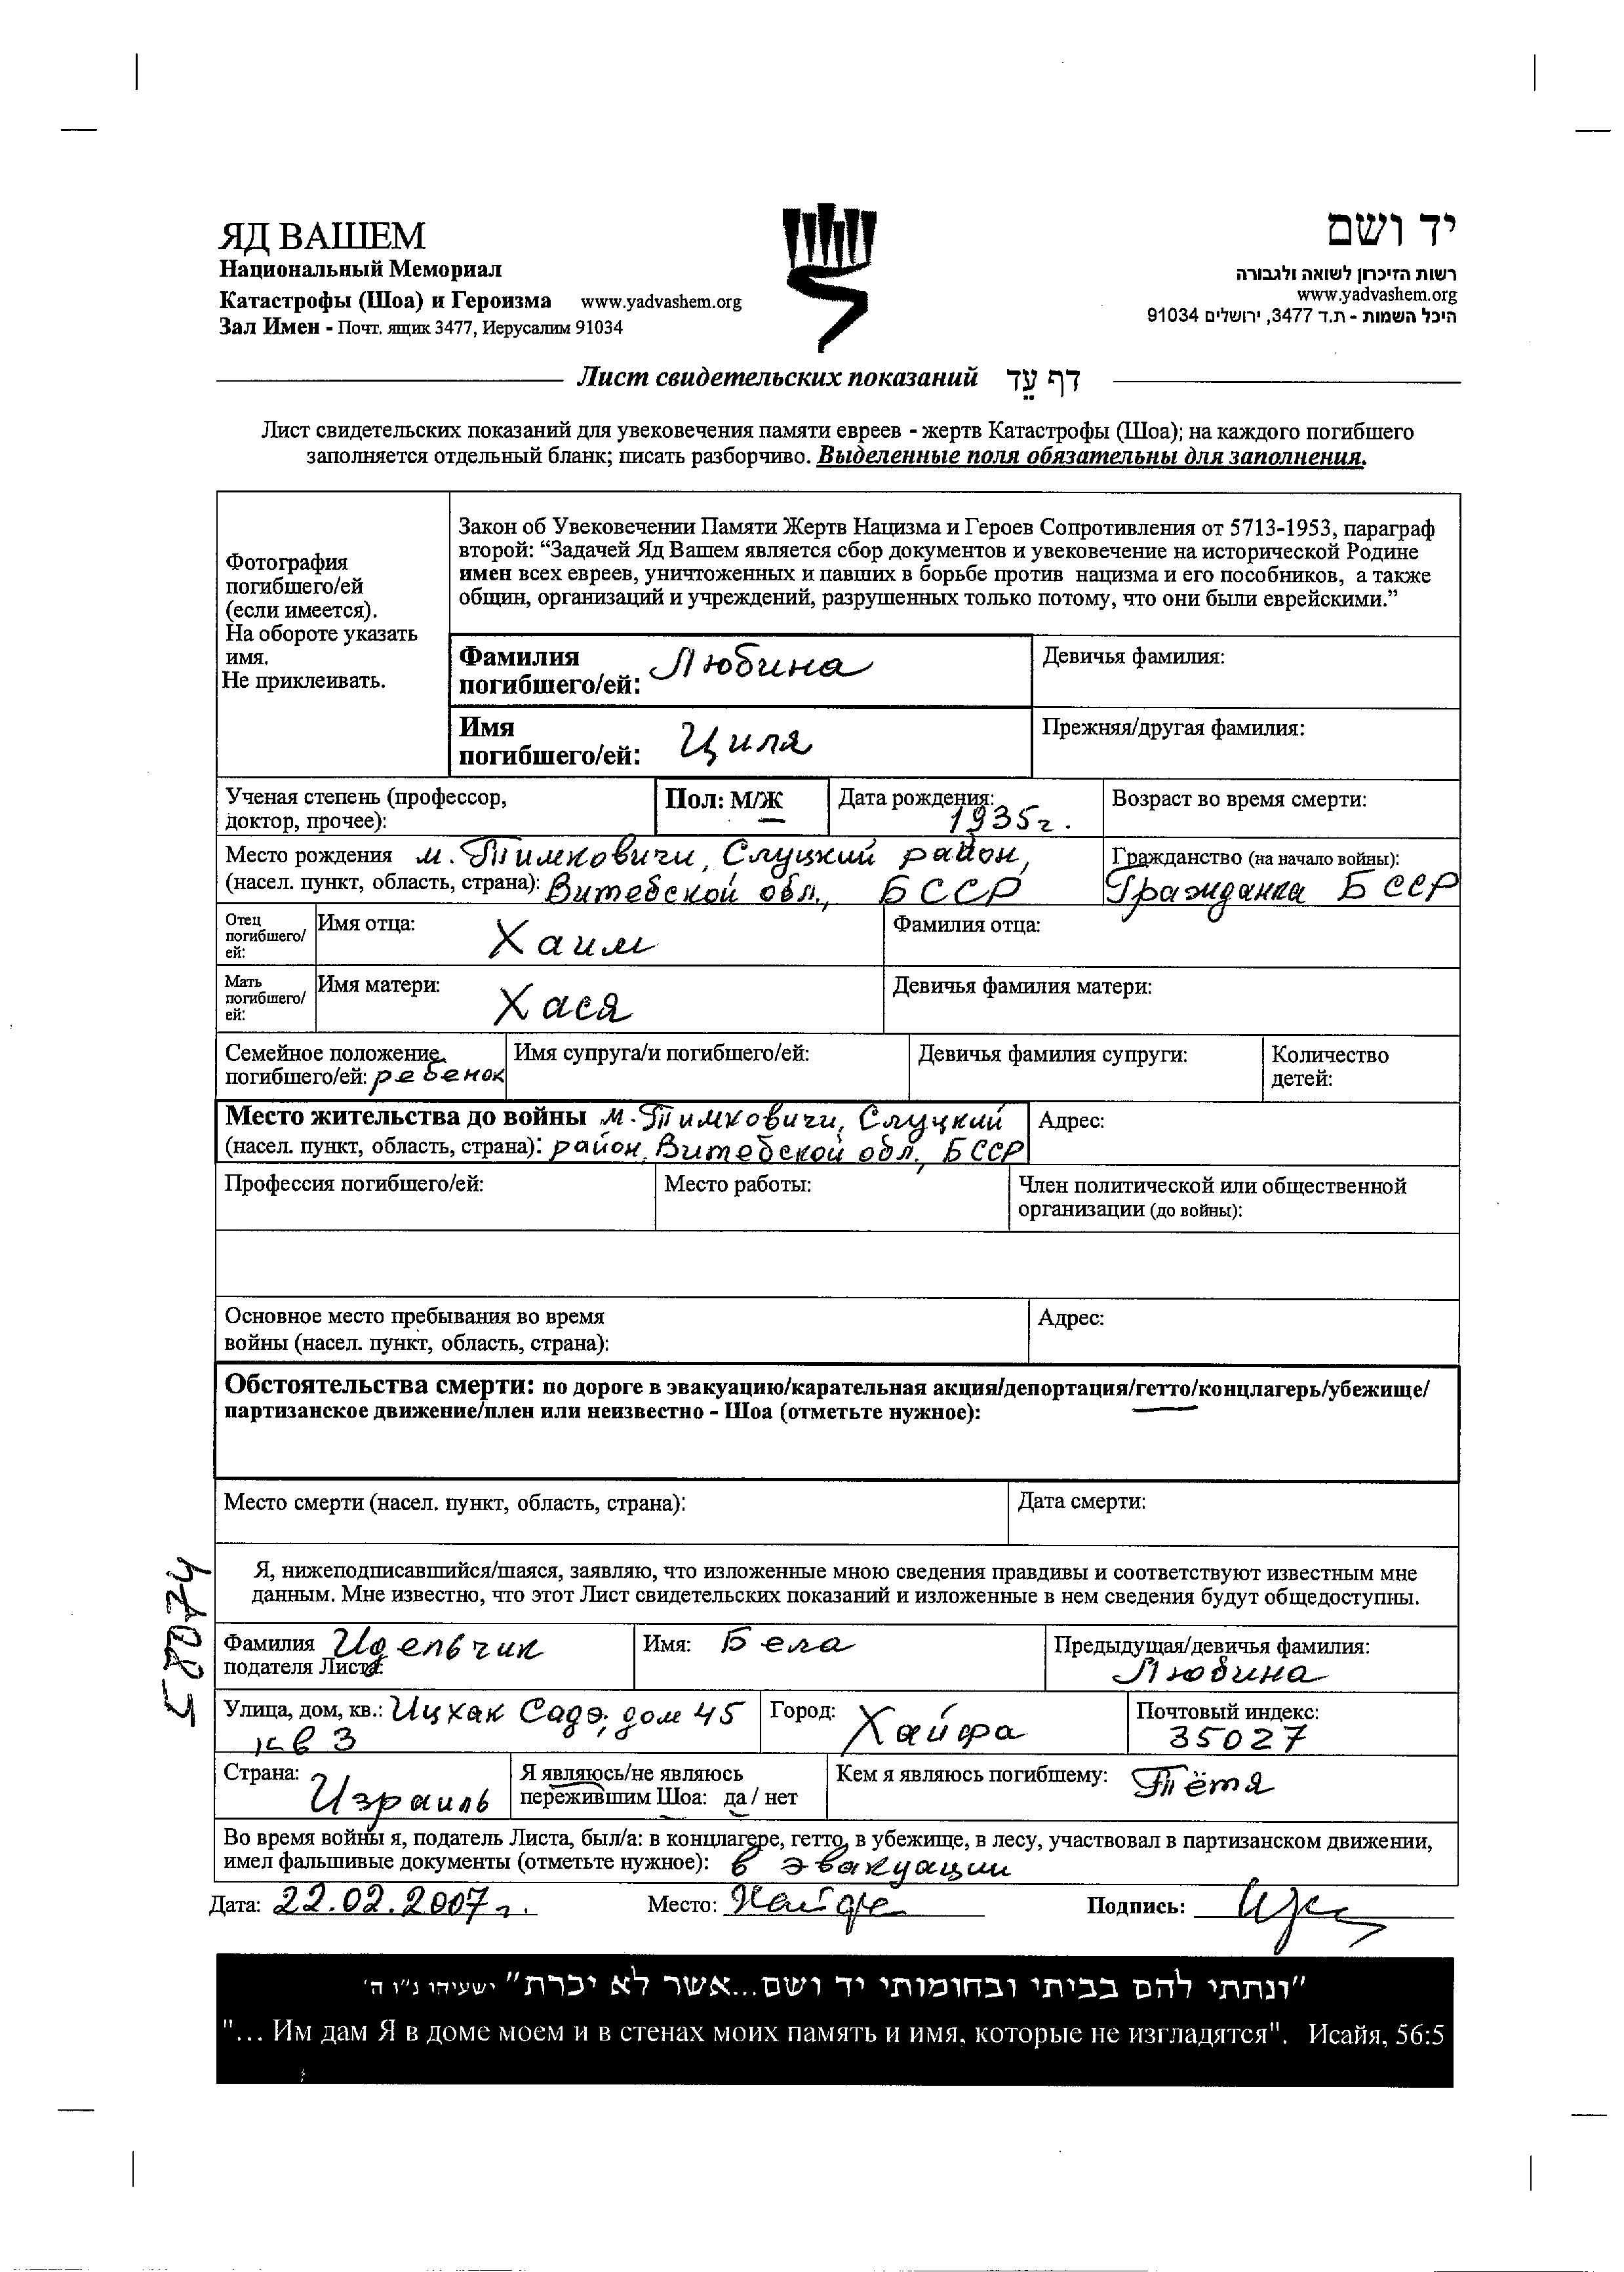 ЯД ВАШЕМ
Национальный Мемориал
Катастрофы (Шоа) и Героизма www.yadvashem.org
Зал Имен - Почт. ящик 3477, Иерусалим 91034
יד ושם
רשות הזיכרון לשואה ולגבורה
www.yadvashem.org
היכל השמות - ת.ד 3477, ירושלים 91034
Лист свидетельских показаний דף עֵד
Лист свидетельских показаний для увековечения памяти евреев - жертв Катастрофы (Шоа); на каждого погибшего
заполняется отдельный бланк; писать разборчиво. Выделенные поля обязательны для заполнения.
Фотография
погибшего/ей
(если имеется).
На обороте указать
имя.
Не приклеивать.
Закон об Увековечении Памяти Жертв Нацизма и Героев Сопротивления от 5713-1953, параграф
второй: “Задачей Яд Вашем является сбор документов и увековечение на исторической Родине
имен всех евреев, уничтоженных и павших в борьбе против нацизма и его пособников, а также
общин, организаций и учреждений, разрушенных только потому, что они были еврейскими.”
Фамилия
погибшего/ей: Любина
Девичья фамилия:
Имя
погибшего/ей: Циля
Прежняя/другая фамилия:
Ученая степень (профессор,
доктор, прочее):
Пол: М/Ж
Дата рождения:
1935г.
Возраст во время смерти:
Место рождения м. Тимковичи, Слуцкий район,
(насел. пункт, область, страна): Витебской обл., БССР
Гражданство (на начало войны):
Гражданка БССР
Отец
погибшего/
ей:
Имя отца: Хаим
Фамилия отца:
Мать
погибшего/
ей:
Имя матери: Хася
Девичья фамилия матери:
Семейное положение
погибшего/ей: ребенок
Имя супруга/и погибшего/ей:
Девичья фамилия супруги:
Количество
детей:
Место жительства до войны м. Тимковичи, Слуцкий
(насел. пункт, область, страна): район, Витебской обл., БССР
Адрес:
Профессия погибшего/ей:
Место работы:
Член политической или общественной
организации (до войны):
Основное место пребывания во время
войны (насел. пункт, область, страна):
Адрес:
Обстоятельства смерти: по дороге в эвакуацию/карательная акция/депортация/гетто/концлагерь/убежище/
партизанское движение/плен или неизвестно - Шоа (отметьте нужное):
Место смерти (насел. пункт, область, страна):
Дата смерти:
58074
Я, нижеподписавшийся/шаяся, заявляю, что изложенные мною сведения правдивы и соответствуют известным мне
данным. Мне известно, что этот Лист свидетельских показаний и изложенные в нем сведения будут общедоступны.
Фамилия Идельчик
подателя Листа:
Имя: Бела
Предыдущая/девичья фамилия:
Любина
Улица, дом, кв.: Ицхак Садэ, дом 45
кв 3
Город: Хайфа
Почтовый индекс:
35027
Страна:
Израиль
Я являюсь/не являюсь
пережившим Шоа: да / нет
Кем я являюсь погибшему: Тётя
Во время войны я, податель Листа, был/а: в концлагере, гетто, в убежище, в лесу, участвовал в партизанском движении,
имел фальшивые документы (отметьте нужное): в эвакуации
Дата: 22.02.2007г. Место: Хайфа Подпись:
"ונתתי להם בביתי ובחומותי יד ושם...אשר לא יכרת" ישעיהו נ"ו ה'
"... Им дам Я в доме моем и в стенах моих память и имя, которые не изгладятся". Исайя, 56:5